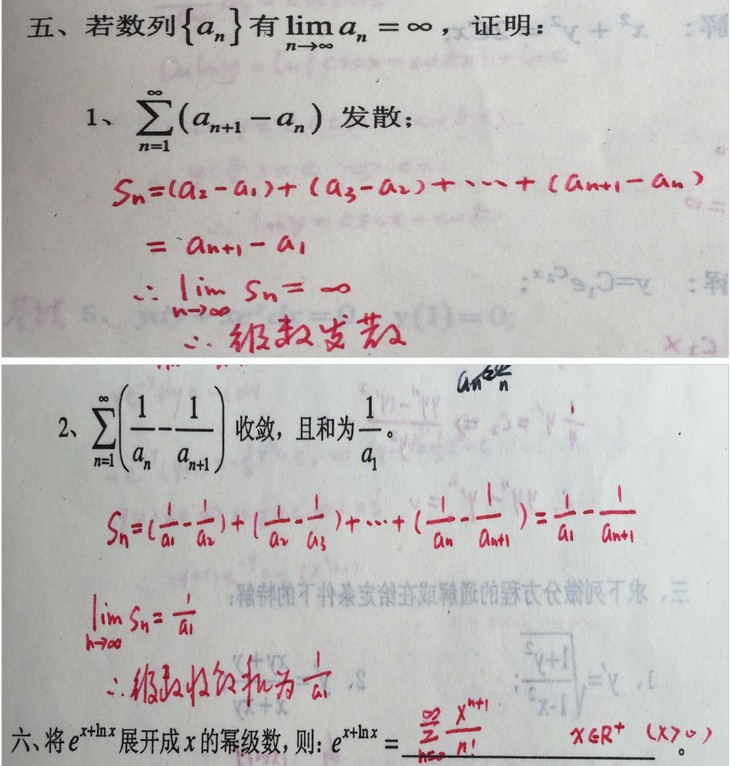 五、若数列{aₙ}有 lim_{n→∞} aₙ = ∞，证明：
1、∑_{n=1}^{∞}(aₙ₊₁ − aₙ) 发散；
Sₙ=(a₂−a₁)+(a₃−a₂)+⋯+(aₙ₊₁−aₙ)
= aₙ₊₁−a₁
∴ lim_{n→∞} Sₙ = ∞
∴ 级数发散
2、∑_{n=1}^{∞}(1/aₙ − 1/aₙ₊₁) 收敛，且和为 1/a₁。
Sₙ=(1/a₁−1/a₂)+(1/a₂−1/a₃)+⋯+(1/aₙ−1/aₙ₊₁)=1/a₁−1/aₙ₊₁
lim_{n→∞} Sₙ = 1/a₁
∴ 级数收敛和为 1/a₁
六、将 e^{x+ln x} 展开成 x 的幂级数，则：e^{x+ln x} = ∑_{n=0}^{∞} x^{n+1}/n! x∈R⁺ (x>0) 。